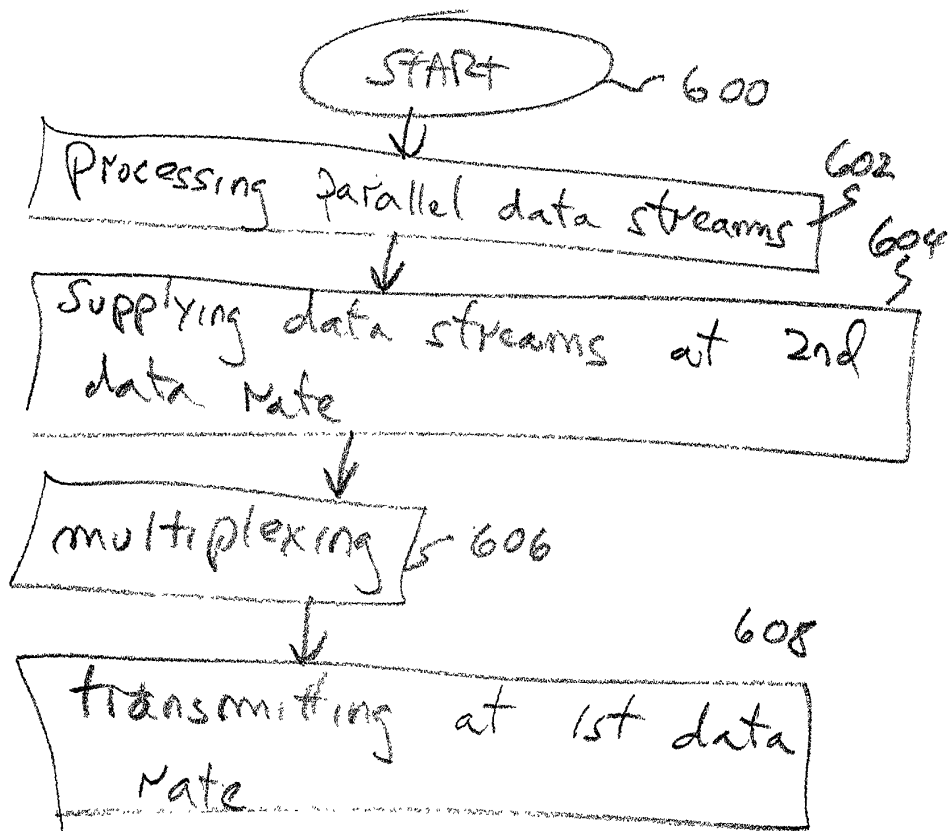 START 600
Processing parallel data streams 602
604
Supplying data streams at 2nd
data rate
multiplexing 606
608
transmitting at 1st data
rate